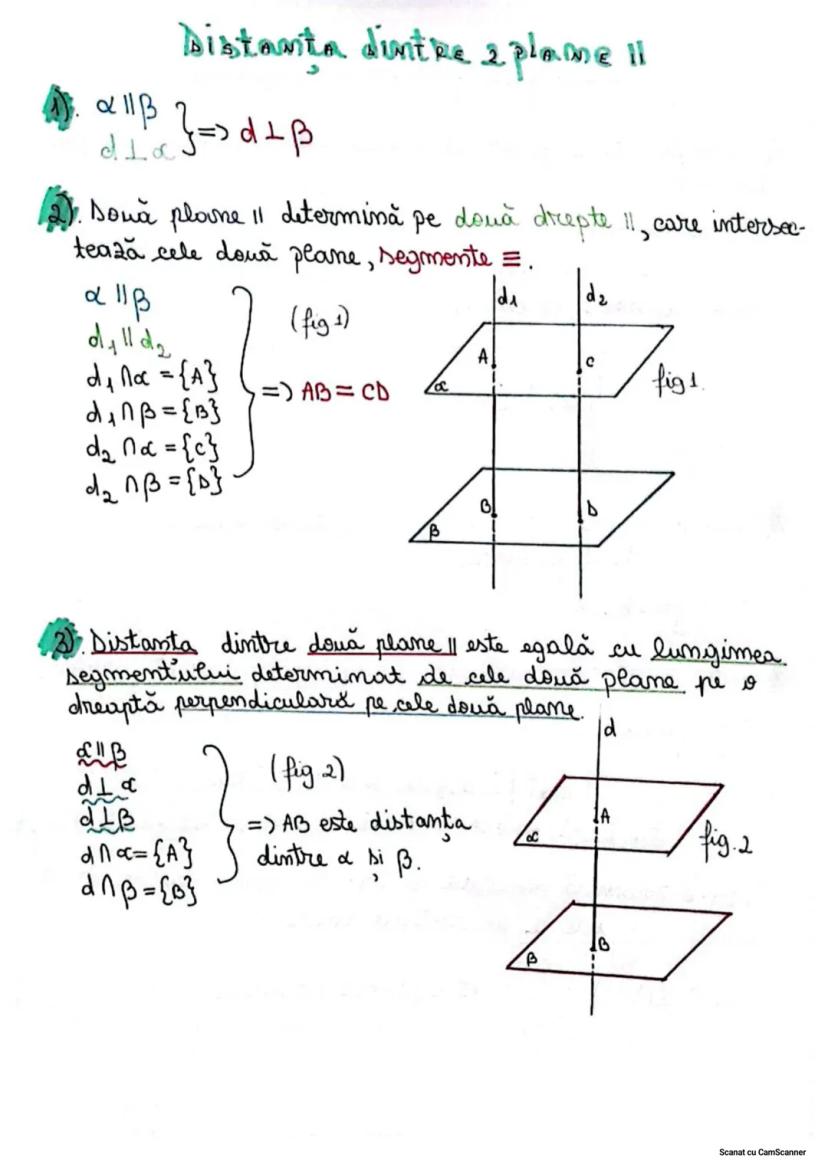 Distanța dintre 2 plane ||
1). α || β
d ⊥ α } => d ⊥ β
2). Două plane || determină pe două drepte ||, care intersec-
tează cele două plane, segmente ≡.
α || β
d₁ || d₂
d₁ ∩ α = {A}
d₁ ∩ β = {B}
d₂ ∩ α = {C}
d₂ ∩ β = {D}
(fig 1)
=> AB = CD
d₁ d₂
A C
α
fig 1.
B D
β
3). Distanta dintre două plane || este egală cu lungimea
segmentului determinat de cele două plane pe o
dreaptă perpendiculară pe cele două plane.
α || β
d ⊥ α
d ⊥ β
d ∩ α = {A}
d ∩ β = {B}
(fig 2)
=> AB este distanța
dintre α și β.
d
A
α
fig. 2
B
β
Scanat cu CamScanner